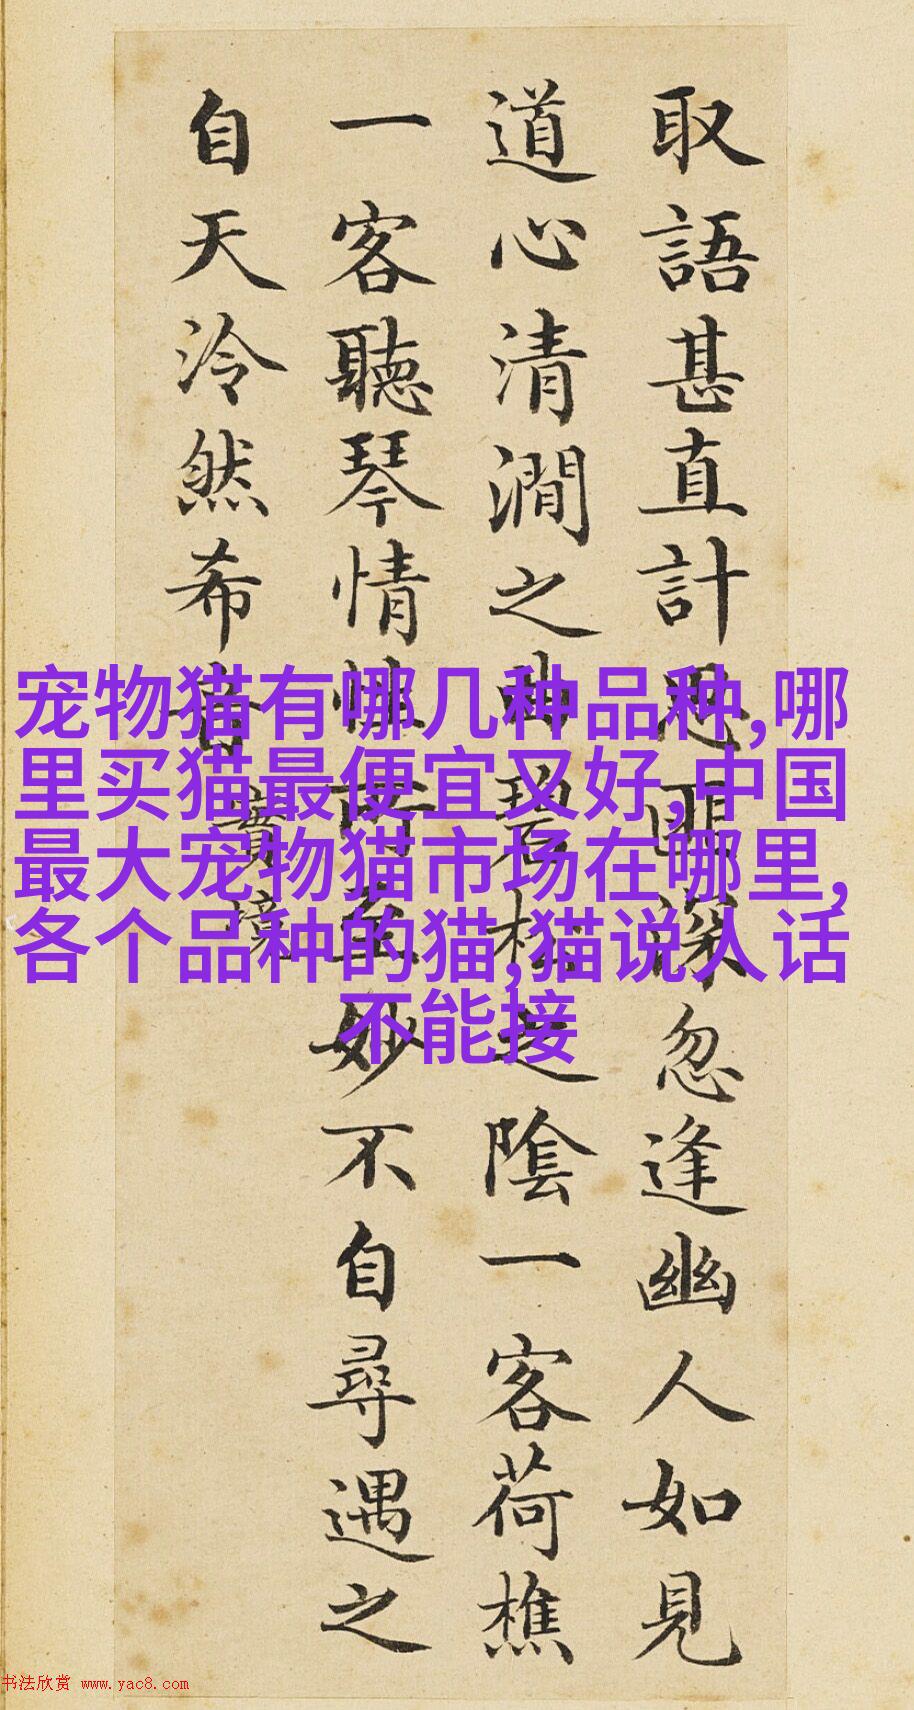 取語甚直計思匪深忽逢幽人如見
道心清澗之曲碧松之陰一客荷樵
一客聽琴情性所至妙不自尋遇之
自天泠然希音
實境
宠物猫有哪几种品种,哪
里买猫最便宜又好,中国
最大宠物猫市场在哪里,
各个品种的猫,猫说人话
不能接
书法欣赏 www.yac8.com